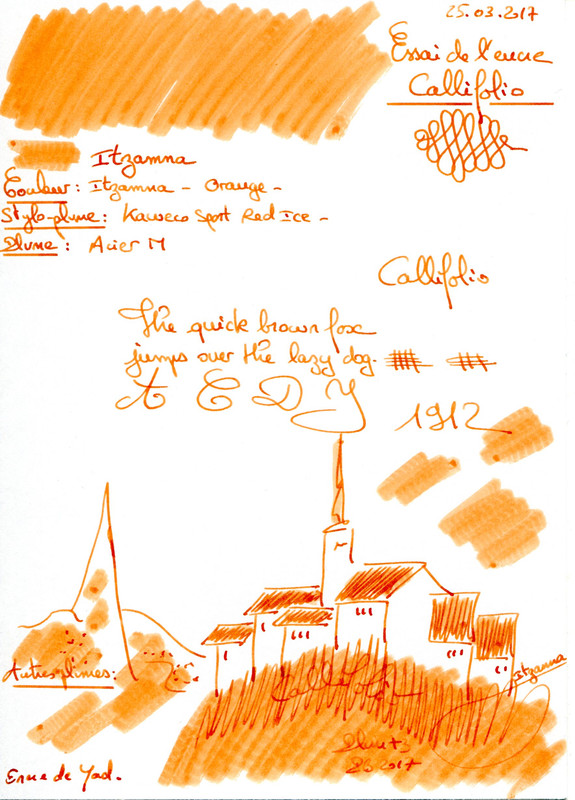 25.03.2017
Essai de l'encre
Callifolio
Itzamna
Couleur : Itzamna - Orange -
Stylo-plume : Kaweco Sport Red Ice -
Plume : Acier M
Callifolio
The quick brown fox
jumps over the lazy dog.
A C D Y
1912
Autres plumes :
Callifolio
Itzamna
2017